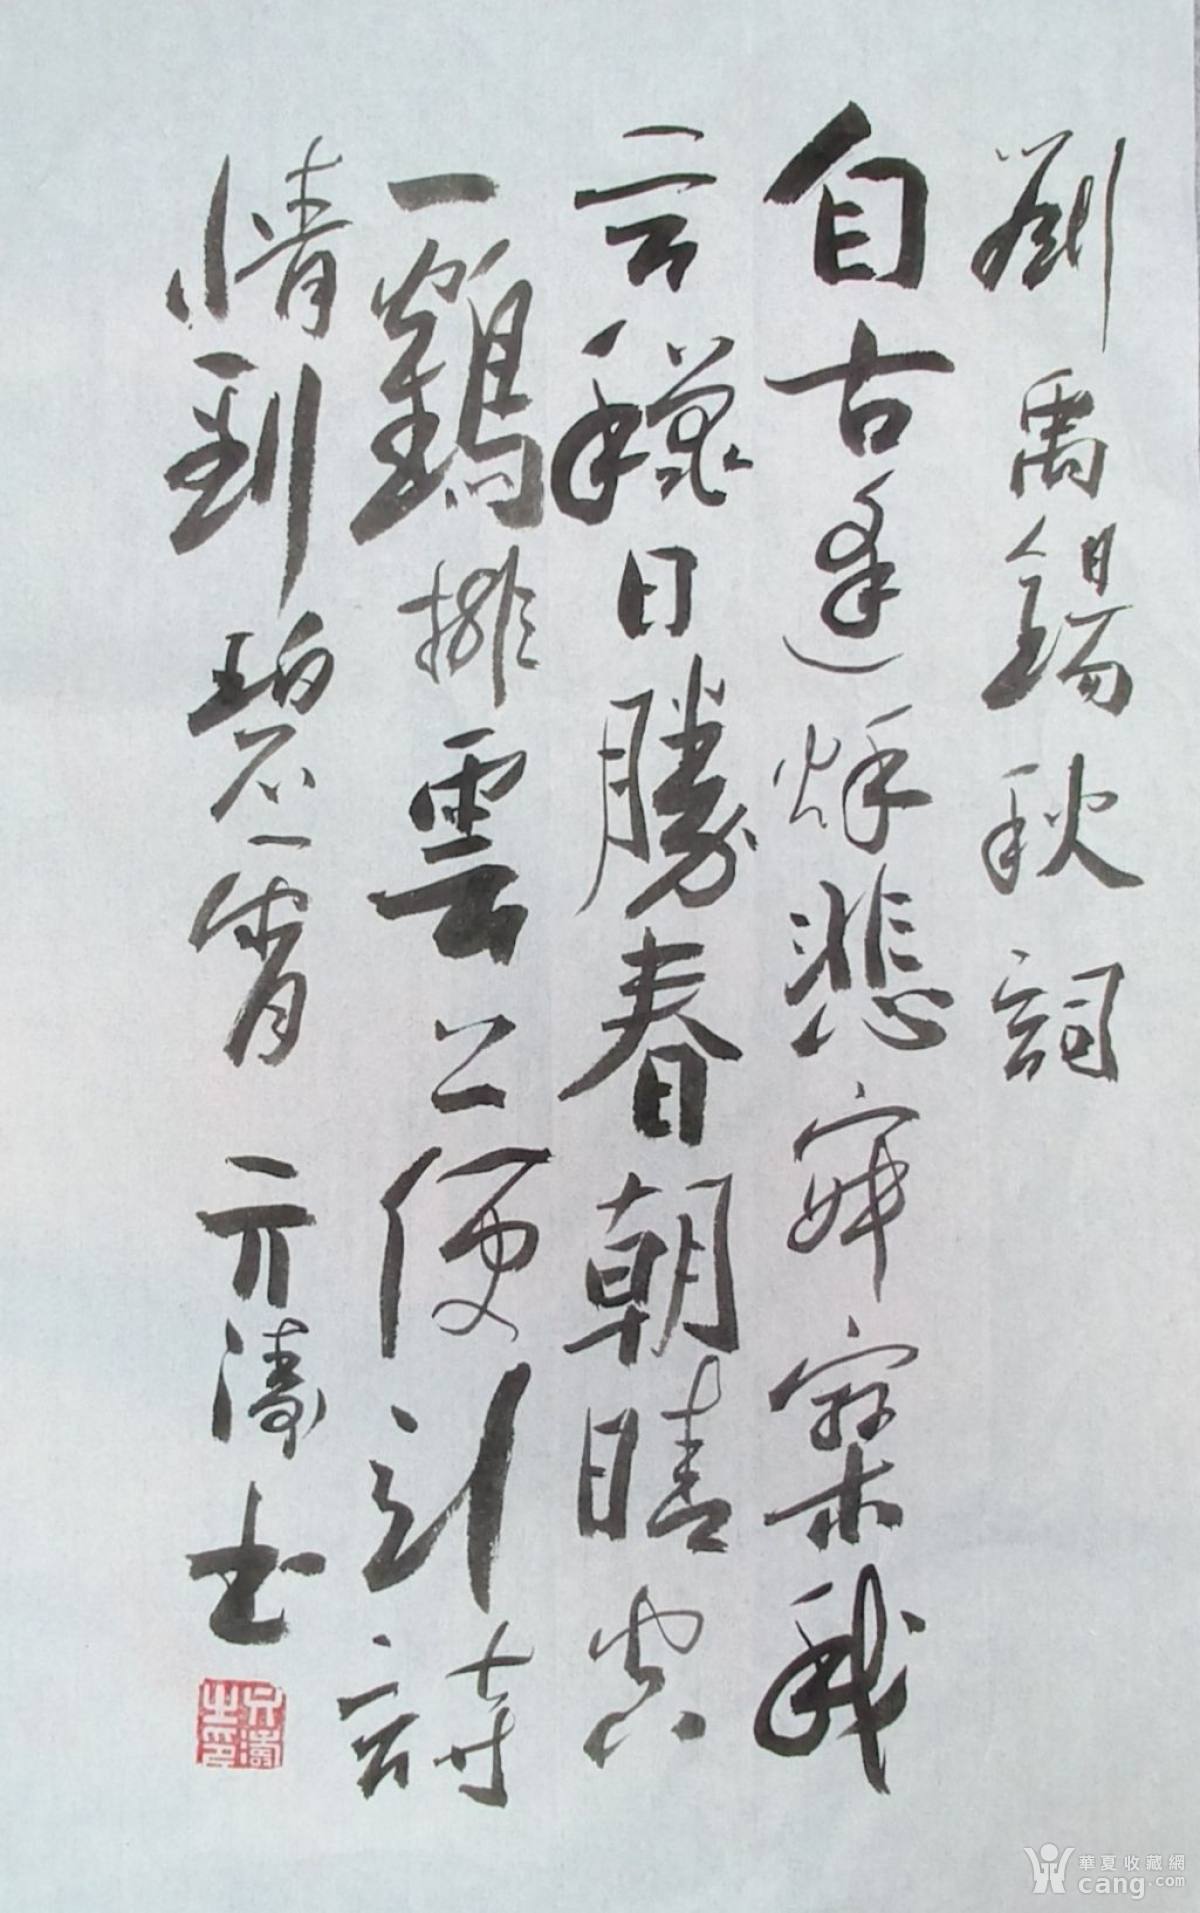 劉禹錫秋詞
自古逢秌悲寂寥我
言穐日勝春朝晴空
一鶴排雲上便引詩
情到碧霄 亓濤书
亓濤之印
華夏收藏網
cang.com